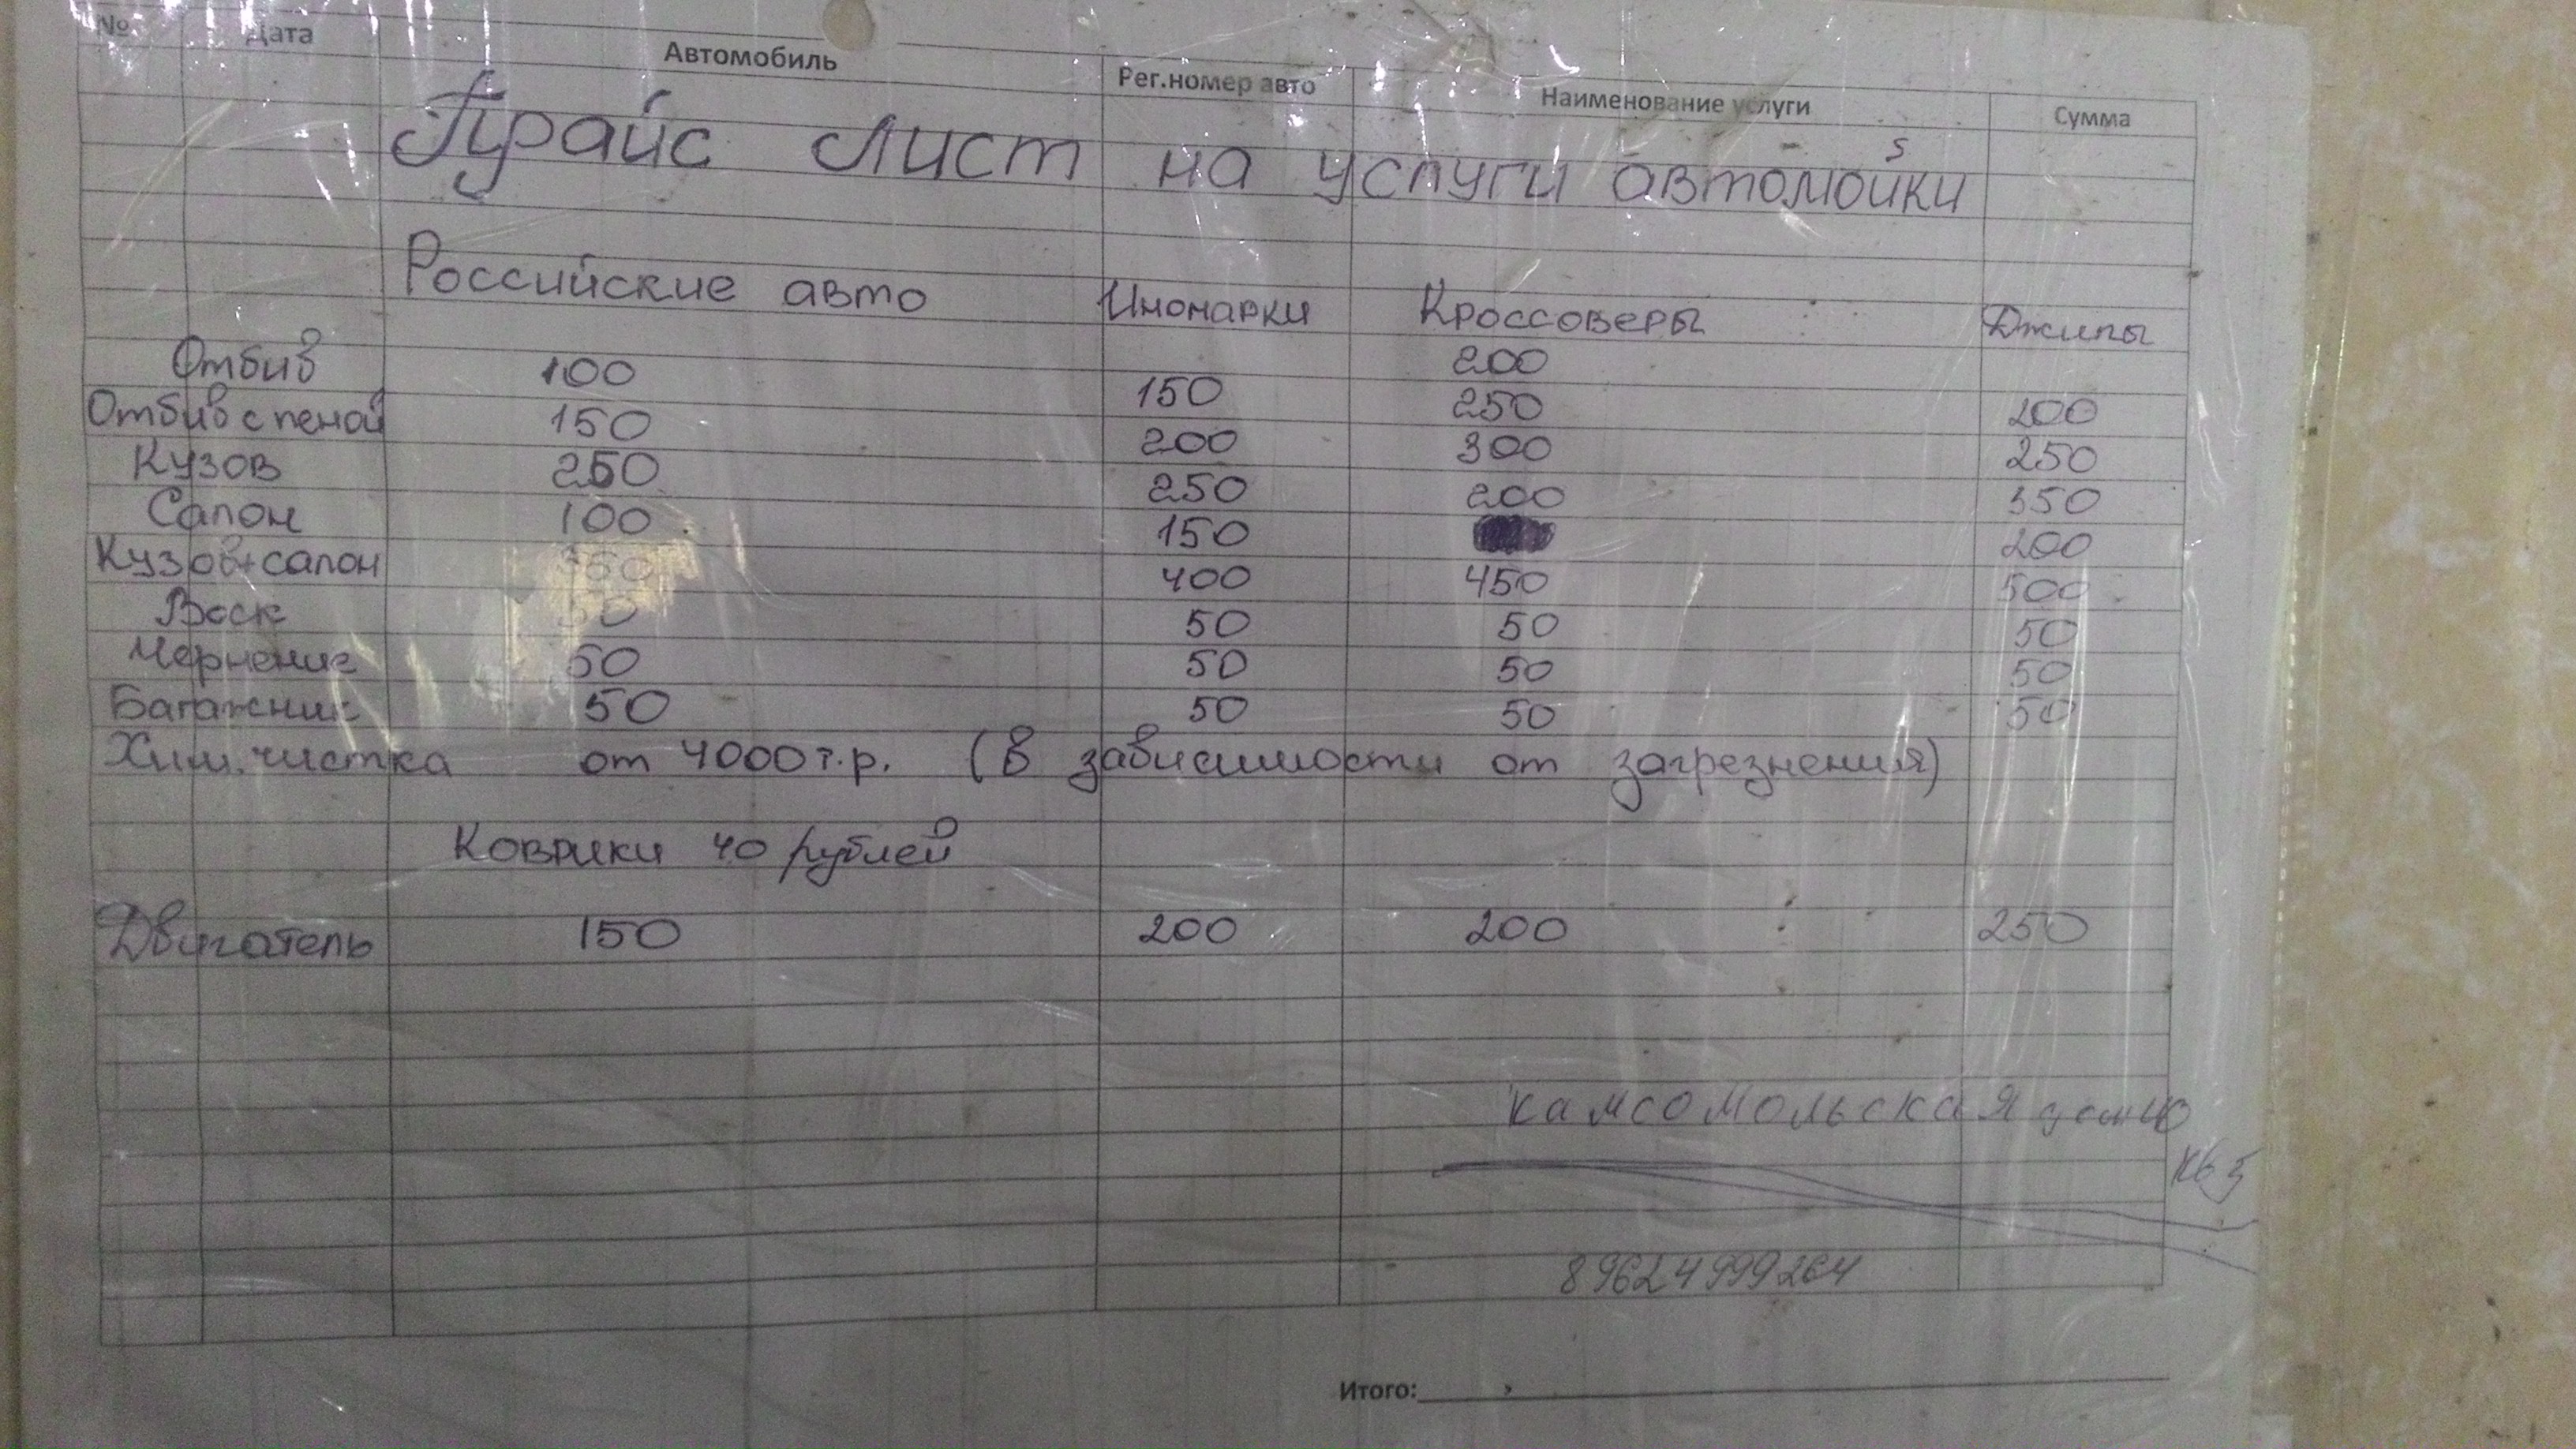 № Дата Автомобиль Рег.номер авто Наименование услуги Сумма
Прайс Лист на услуги автомойки
Российские авто Иномарки Кроссоверы Джипы
Отбив 100 150 200 200
Отбив с пеной 150 200 250 250
Кузов 250 250 300 350
Салон 100 150 200 200
Кузов+салон 350 400 450 500
Воск 50 50 50 50
Чернение 50 50 50 50
Багажник 50 50 50 50
Хим. чистка от 4000 т.р. (в зависимости от загрезнения)
Коврики 40 рублей
Двигатель 150 200 200 250
камсомольская
кв 5
89624999264
Итого: